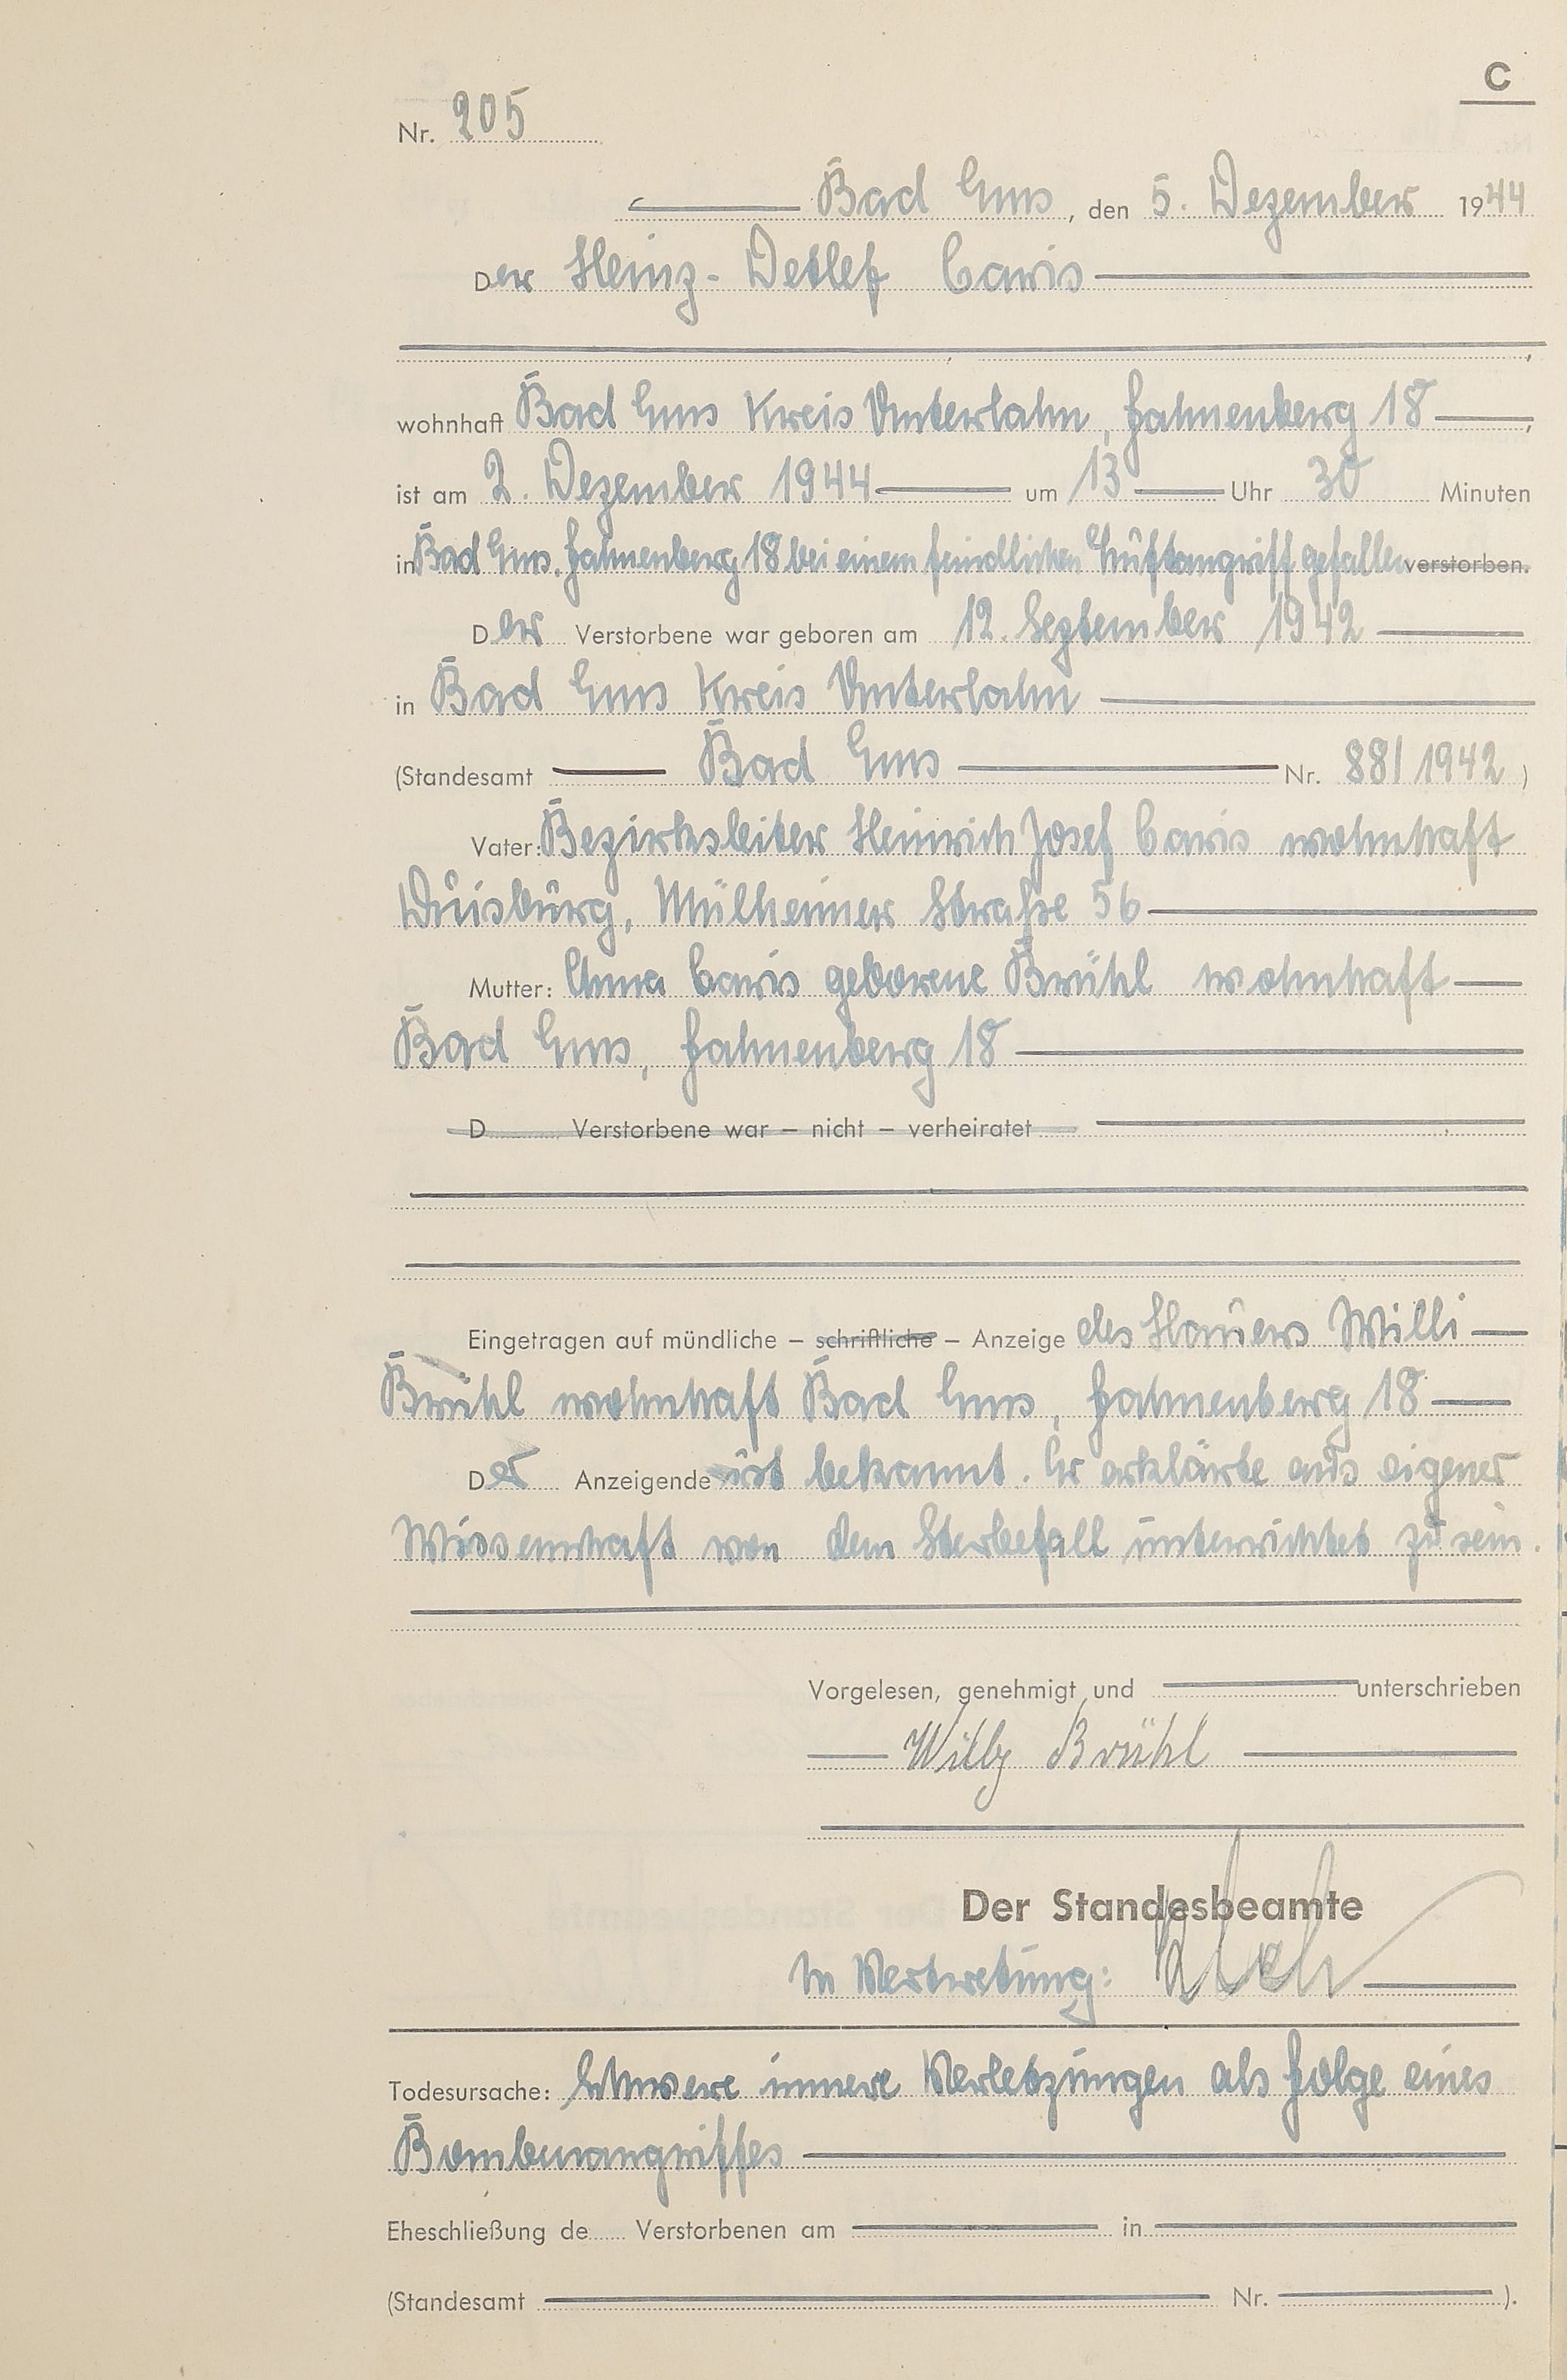 C
Nr. 205
Bad Ems, den 5. Dezember 1944
Der Heinz-Detlef Caris
wohnhaft Bad Ems Kreis Unterlahn, Hahnenberg 18,
ist am 2. Dezember 1944 um 13 Uhr 30 Minuten
in Bad Ems, Hahnenberg 18 bei einem feindlichen Luftangriff gefallen verstorben.
Der Verstorbene war geboren am 12. September 1942
in Bad Ems Kreis Unterlahn
(Standesamt Bad Ems Nr. 88/1942)
Vater: Bezirksleiter Heinrich Josef Caris wohnhaft
Duisburg, Mülheimer Straße 56
Mutter: Anna Caris geborene Brühl wohnhaft
Bad Ems, Hahnenberg 18
D Verstorbene war – nicht – verheiratet
Eingetragen auf mündliche – schriftliche – Anzeige des Hauers Willi
Brühl wohnhaft Bad Ems, Hahnenberg 18
Der Anzeigende ist bekannt. Er erklärte aus eigener
Wissenschaft von dem Sterbefall unterrichtet zu sein.
Vorgelesen, genehmigt und unterschrieben
Willy Brühl
Der Standesbeamte
In Vertretung:
Todesursache: Schwere innere Verletzungen als Folge eines
Bombenangriffes
Eheschließung de Verstorbenen am in
(Standesamt Nr. ).